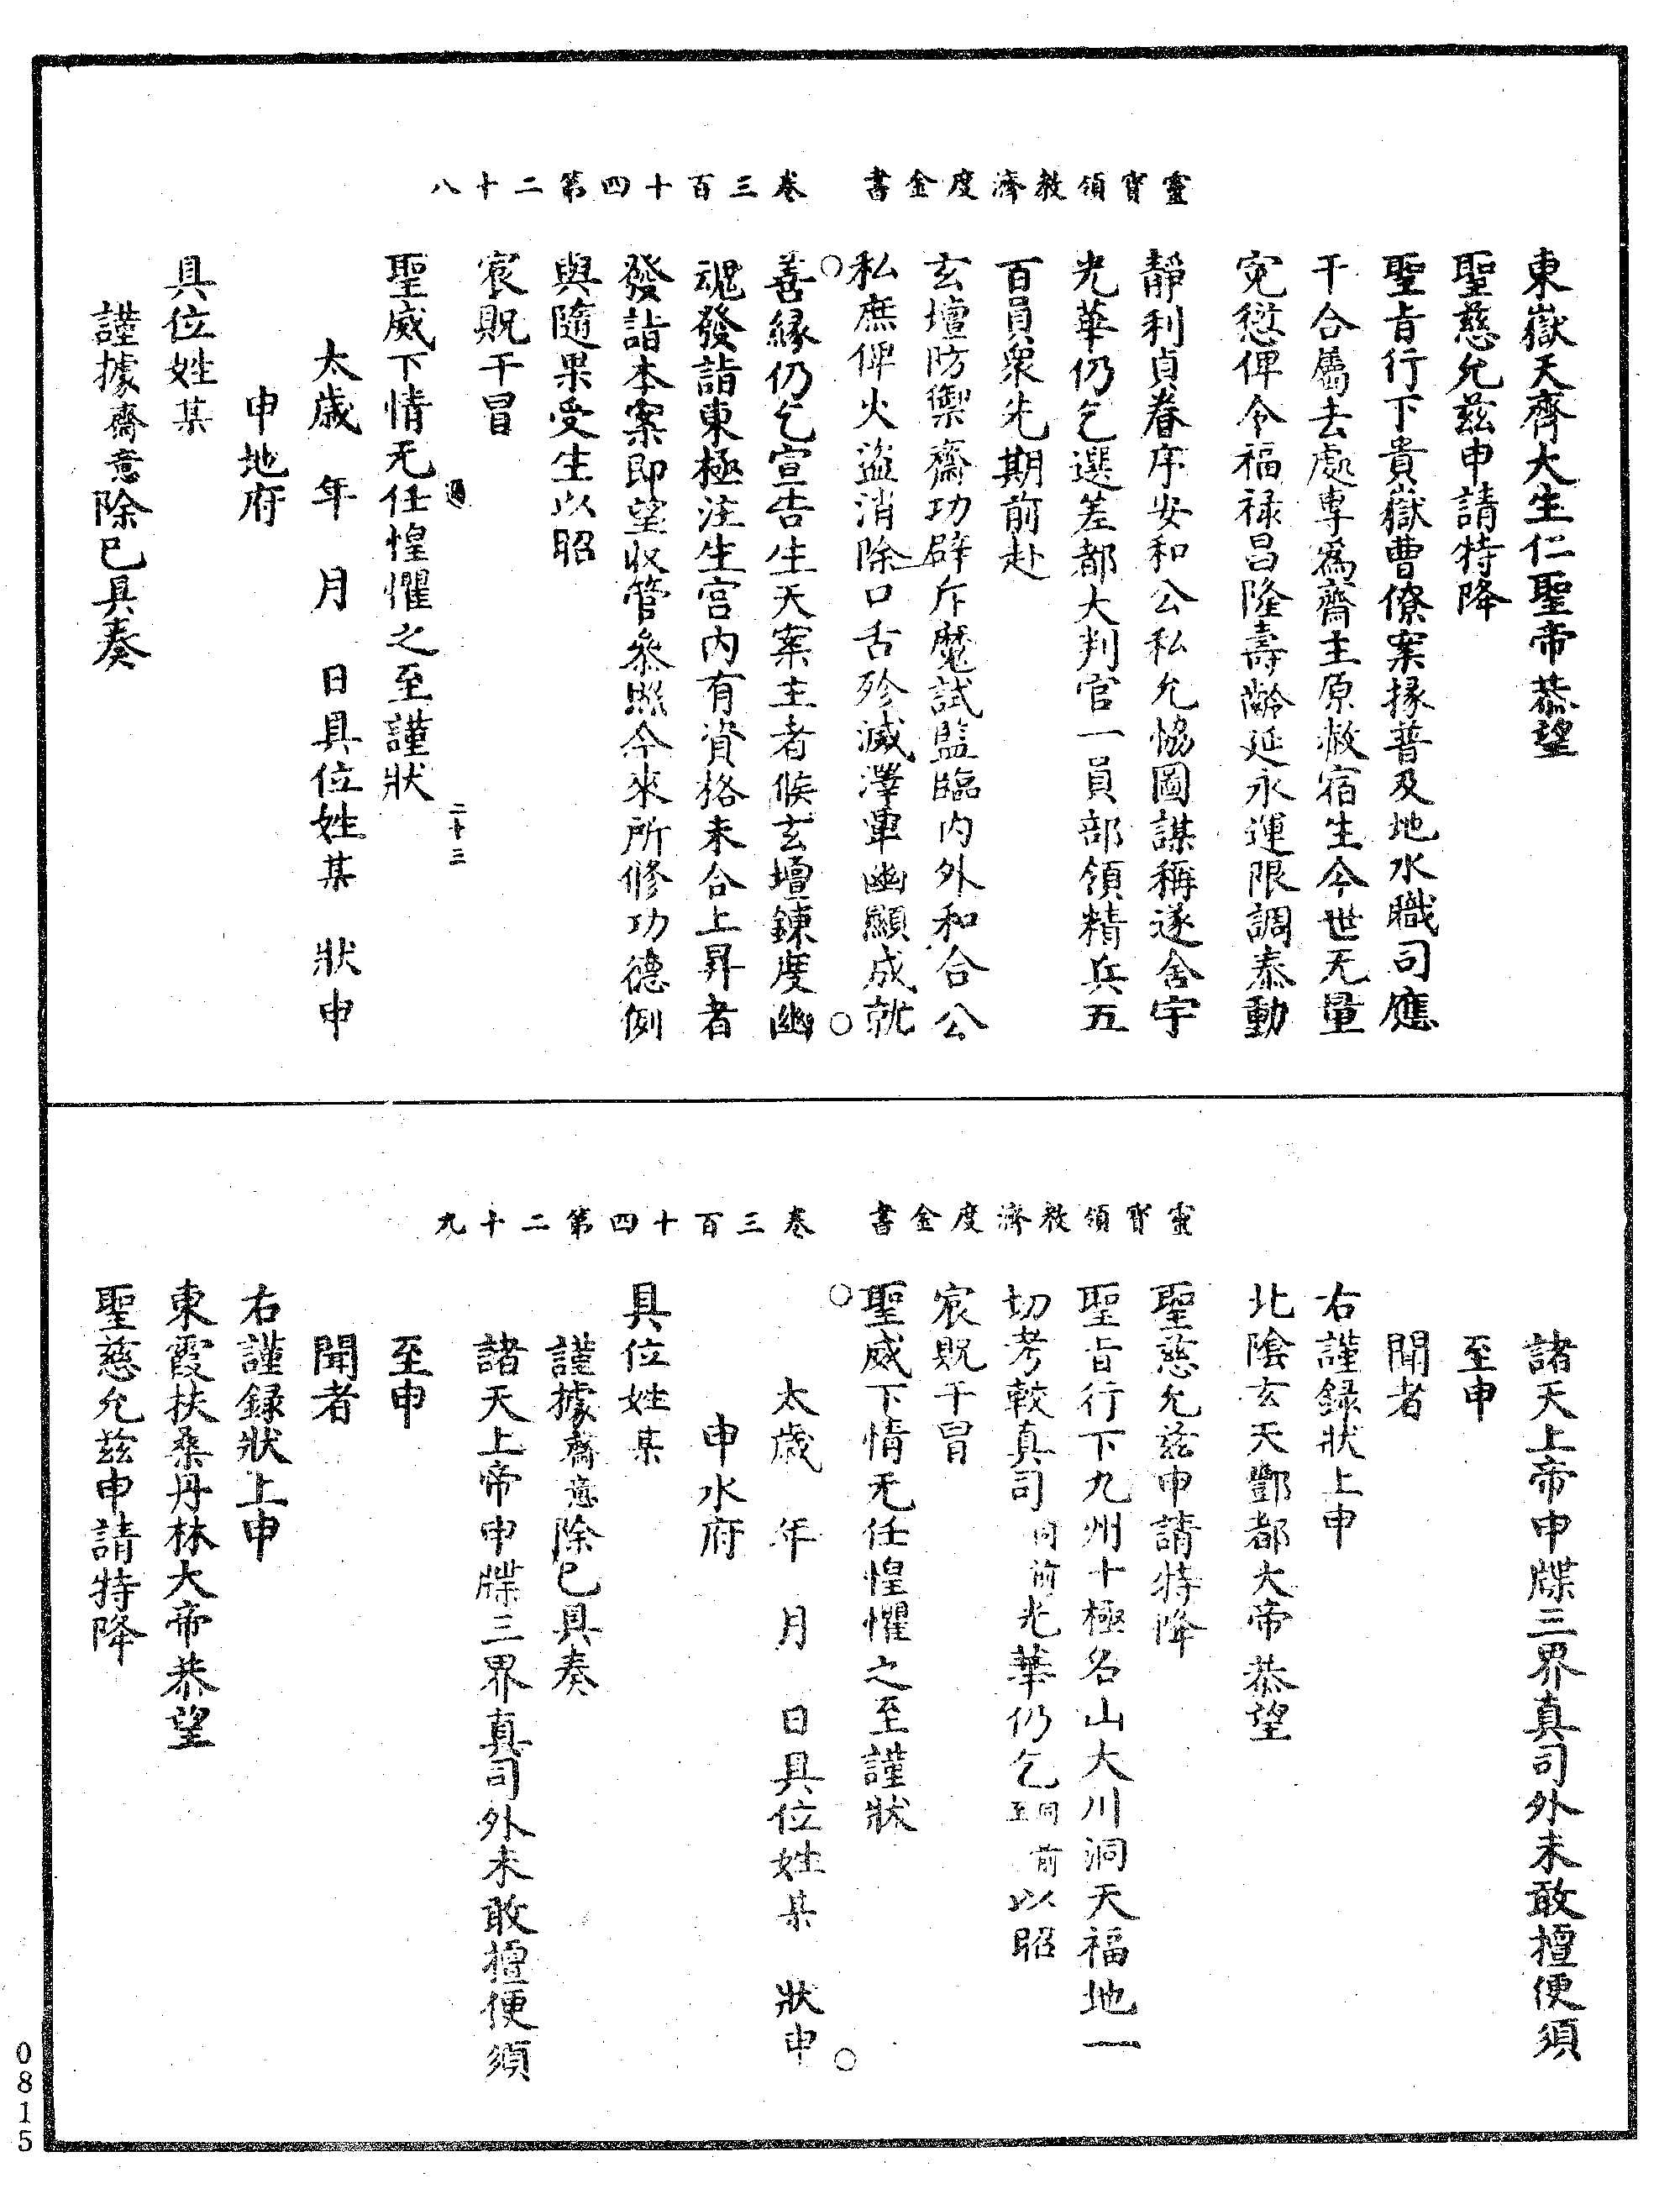 靈寶領教濟度金書　卷三百十四第二十八
東嶽天齊大生仁聖帝恭望
聖慈允茲申請特降
聖旨行下貴嶽曹僚案掾普及地水職司應
干合屬去處專爲齋主原赦宿生今世无量
𠍴愆俾令福禄昌隆壽齡延永運限調泰動
靜利貞眷序安和公私允恊圖謀稱遂舍宇
光華仍乞選差都大判官一員部領精兵五
百員衆先期前赴
玄壇防禦齋功辟斥魔試監臨内外和合公
私庶俾火盜消除口舌殄滅澤覃幽顯成就
善緣仍乞宣告生天案主者候玄壇鍊度幽
魂發詣東極注生宫内有資格未合上昇者
發詣本案即望收管叅照今來所修功德側
與隨果受生以昭
宸貺干冒
聖威下情无任惶懼之至謹狀
二十三
太歲　年　月　日具位姓某　狀申
申地府
具位姓某
謹據齋意除已具奏
靈寶領教濟度金書　卷三百十四第二十九
諸天上帝申牒三界真司外未敢擅便須
至申
聞者
右謹録狀上申
北隂玄天酆都大帝恭望
聖慈允兹申請特降
聖旨行下九州十極名山大川洞天福地一
切考較真司同前光華仍乞同前至以昭
宸貺干冒
聖威下情无任惶懼之至謹狀
太歲　年　月　日具位姓某　狀申
申水府
具位姓某
謹據齋意除已具奏
諸天上帝申牒三界真司外未敢擅便須
至申
聞者
右謹録狀上申
東霞扶桑丹林大帝恭望
聖慈允茲申請特降
0815